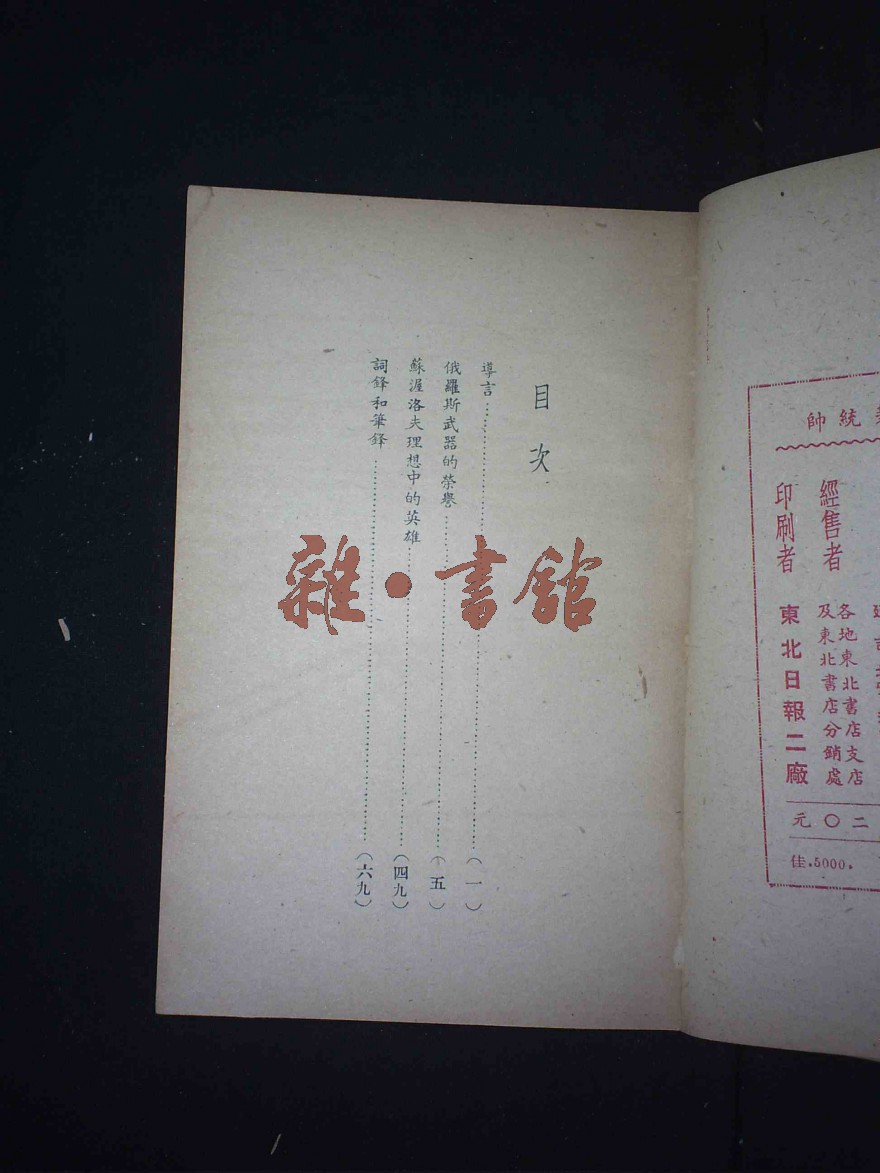 目次
導言……(一)
俄羅斯武器的榮譽……(五)
蘇渥洛夫理想中的英雄……(四九)
詞鋒和筆鋒……(六九)
雜·書館
統帥
經售者
各地東北書店支店
及東北書店分銷處
印刷者
東北日報二廠
二〇元
佳.5000.